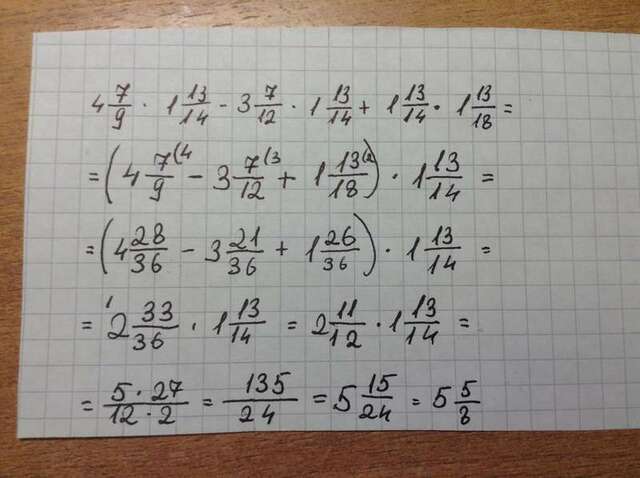 4 7/9 · 1 13/14 - 3 7/12 · 1 13/14 + 1 13/14 · 1 13/18 =
= (4 7/9 (4 - 3 7/12 (3 + 1 13/18 (2) · 1 13/14 =
= (4 28/36 - 3 21/36 + 1 26/36) · 1 13/14 =
= 2 33/36 · 1 13/14 = 2 11/12 · 1 13/14 =
= 5·27/12·2 = 135/24 = 5 15/24 = 5 5/8